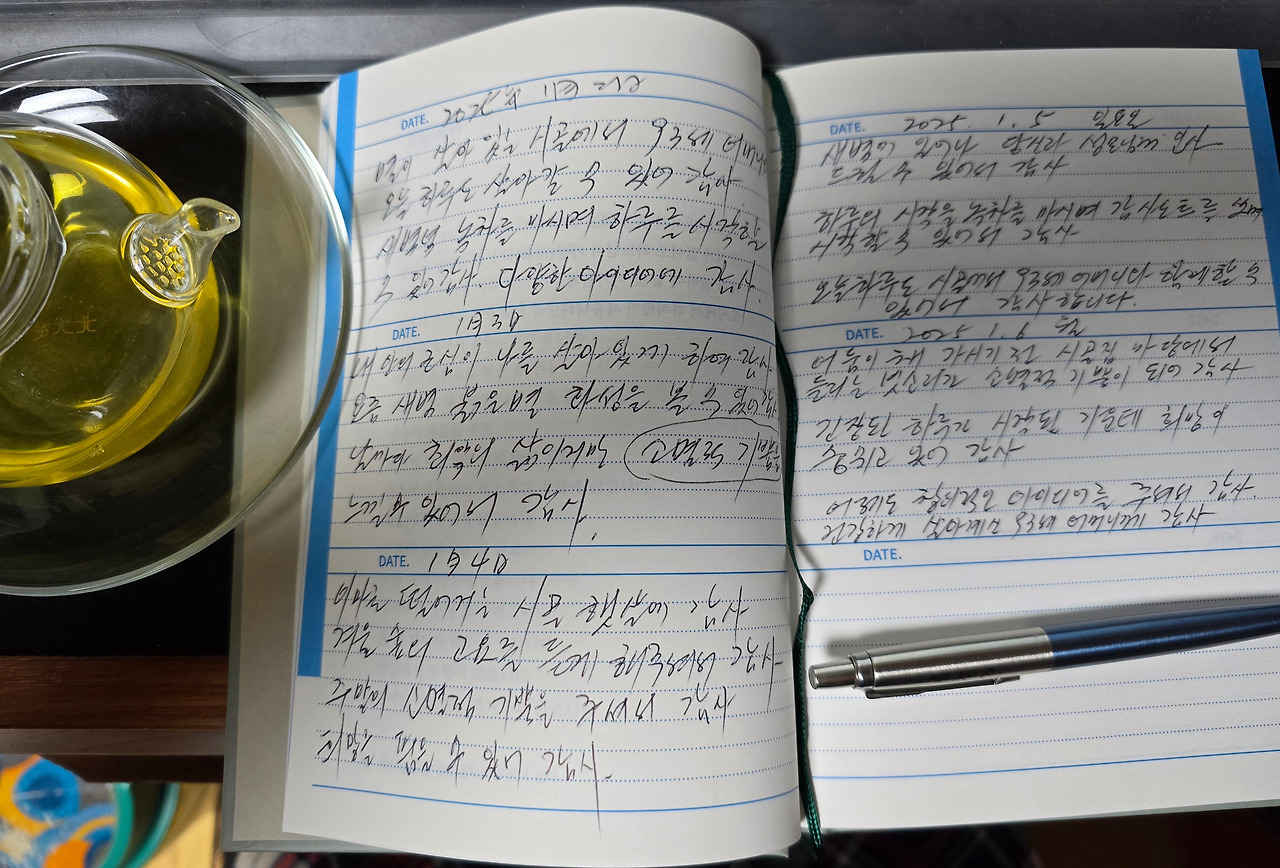 DATE. 2025년 1월 2일
별이 살아 있는 시골에서 93세 어머니
오늘 하루도 살아갈 수 있어 감사
새벽녘 녹차를 마시며 하루를 시작할
수 있어 감사. 다양한 아이디어에 감사.
DATE. 1월 3일
내 안의 근심이 나를 살아 있게 하여 감사
요즘 새벽 붉은별 화성을 볼 수 있어 감사
날마다 최악의 삶이지만 고열적 기쁨을
느낄 수 있어서 감사.
DATE. 1월 4일
이마로 떨어지는 시골 햇살에 감사
겨울 숲의 고요를 듣게 해주셔서 감사
주말의 기쁨을 주셔서 감사
희망을 품을 수 있어 감사.
DATE. 2025. 1. 5 일요일
새벽에 일어나
드릴 수 있어서 감사
하루의 시작을 녹차를 마시며 감사노트를 쓰며
시작할 수 있어서 감사
오늘하루도 시골에서 93세 어머니와 함께할 수
있어서 감사합니다.
DATE. 2025 1. 6 월
어둠이 채 가시기 전 시골집 마당에서
들리는 빗소리가 기쁨이 되어 감사
긴장된 하루가 시작된 가운데 희망이
있어 감사
어제도 창의적인 아이디어를 주셔서 감사.
건강하게 살아계신 93세 어머니께 감사
DATE.